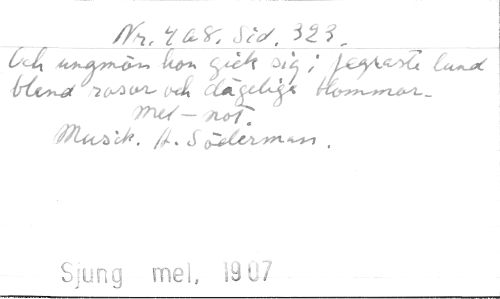 Nr. 4 a 8. Sid. 323.
Och ungmön hon gick sig i fagraste lund
bland rosor och dägeliga blommor.
Mel-not.
Musik. A. Söderman.
Sjung mel, 1907